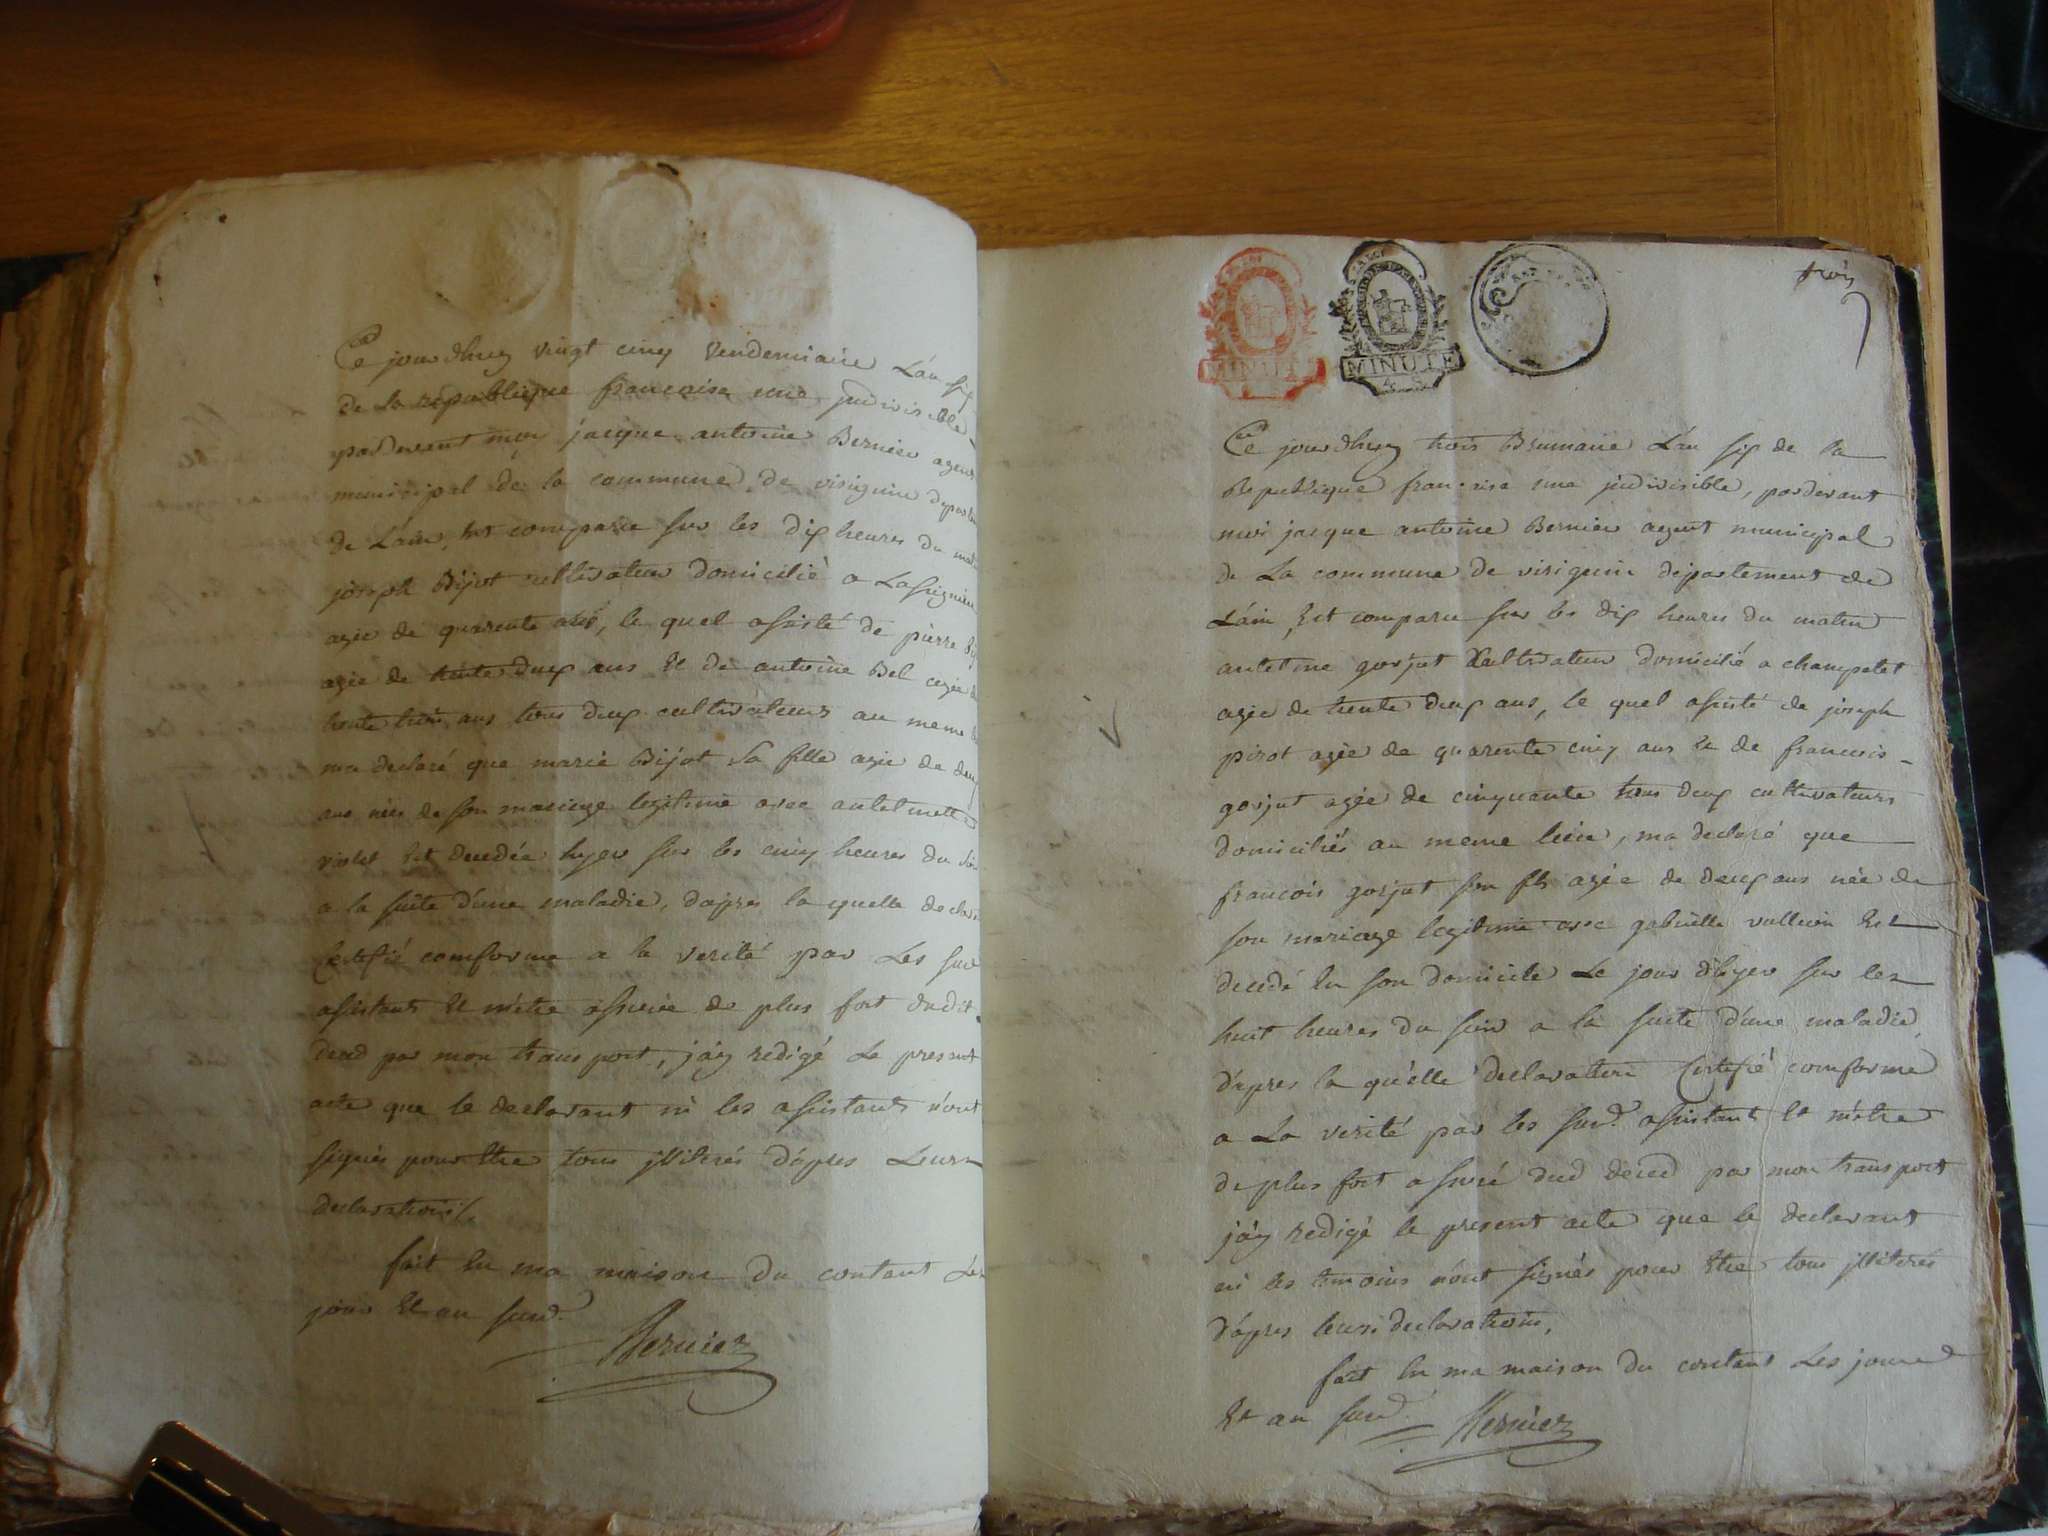 Ce jourdhuy vingt cinq vendemiaire L'an six
de la republique francaise une jndivisible
pardevant moy jacque antoine Bernier agent
municipal de la commune de virignin departem
de L'ain, Est comparu sur les dix heures du matin
joseph Bijot cultivateur domicilié a Lassignieu
agée de quarente ans, le quel assisté de pierre
agée de trente deux ans Et de antoine Bel agée de
trente trois ans tous deux cultivateurs au meme
ma declaré que marie Bijot sa fille agée de deux
ans née de son mariage legitime avec antelmette
violet Est decedée hyer sur les cinq heures du soir
a la suite d'une maladie, d'apres la quelle declara
Certifié comforme a la verité par Les sud
assistants Et m'etre assurée de plus fort dudit
deced par mon transport, j'ay redigé Le present
acte que le declarant ni les assistants n'ont
signés pour Etre tous jlliterés d'apres Leurs
declarations.
fait En ma maison du contant Les
jour Et an susd.
Bernier
trois
MINUTE
MINUTE
Ce jourdhuy trois Brumaire L'an six de la
Republique francaise une jndivisible, pardevant
moi jacque antoine Bernier agent municipal
de La commune de virignin departement de
L'ain, Est comparu sur les dix heures du matin
antelme gorjut Cultivateur domicilié a champetel
agée de trente deux ans, le quel assisté de joseph
pirot agée de quarente cinq ans Et de francois
gorjut agée de cinquante tous deux cultivateurs
domiciliés au meme lieu, ma declaré que
francois gorjut son fils agée de deux ans née de
son mariage legitime avec gabrielle vullion Est
decedé En son domicile Le jour d'hyer sur les
huit heures du soir a la suite d'une maladie,
d'apres la qu'elle declaration Certifié comforme
a La verité par les sud. assistant Et m'etre
de plus fort assuré dud deced par mon transport
j'ay redigé le present acte que le declarant
ni les temoins n'ont signés pour Etre tous jlliterés
d'apres leurs declarations,
fait En ma maison du contant Les jour
Et an susd.
Bernier